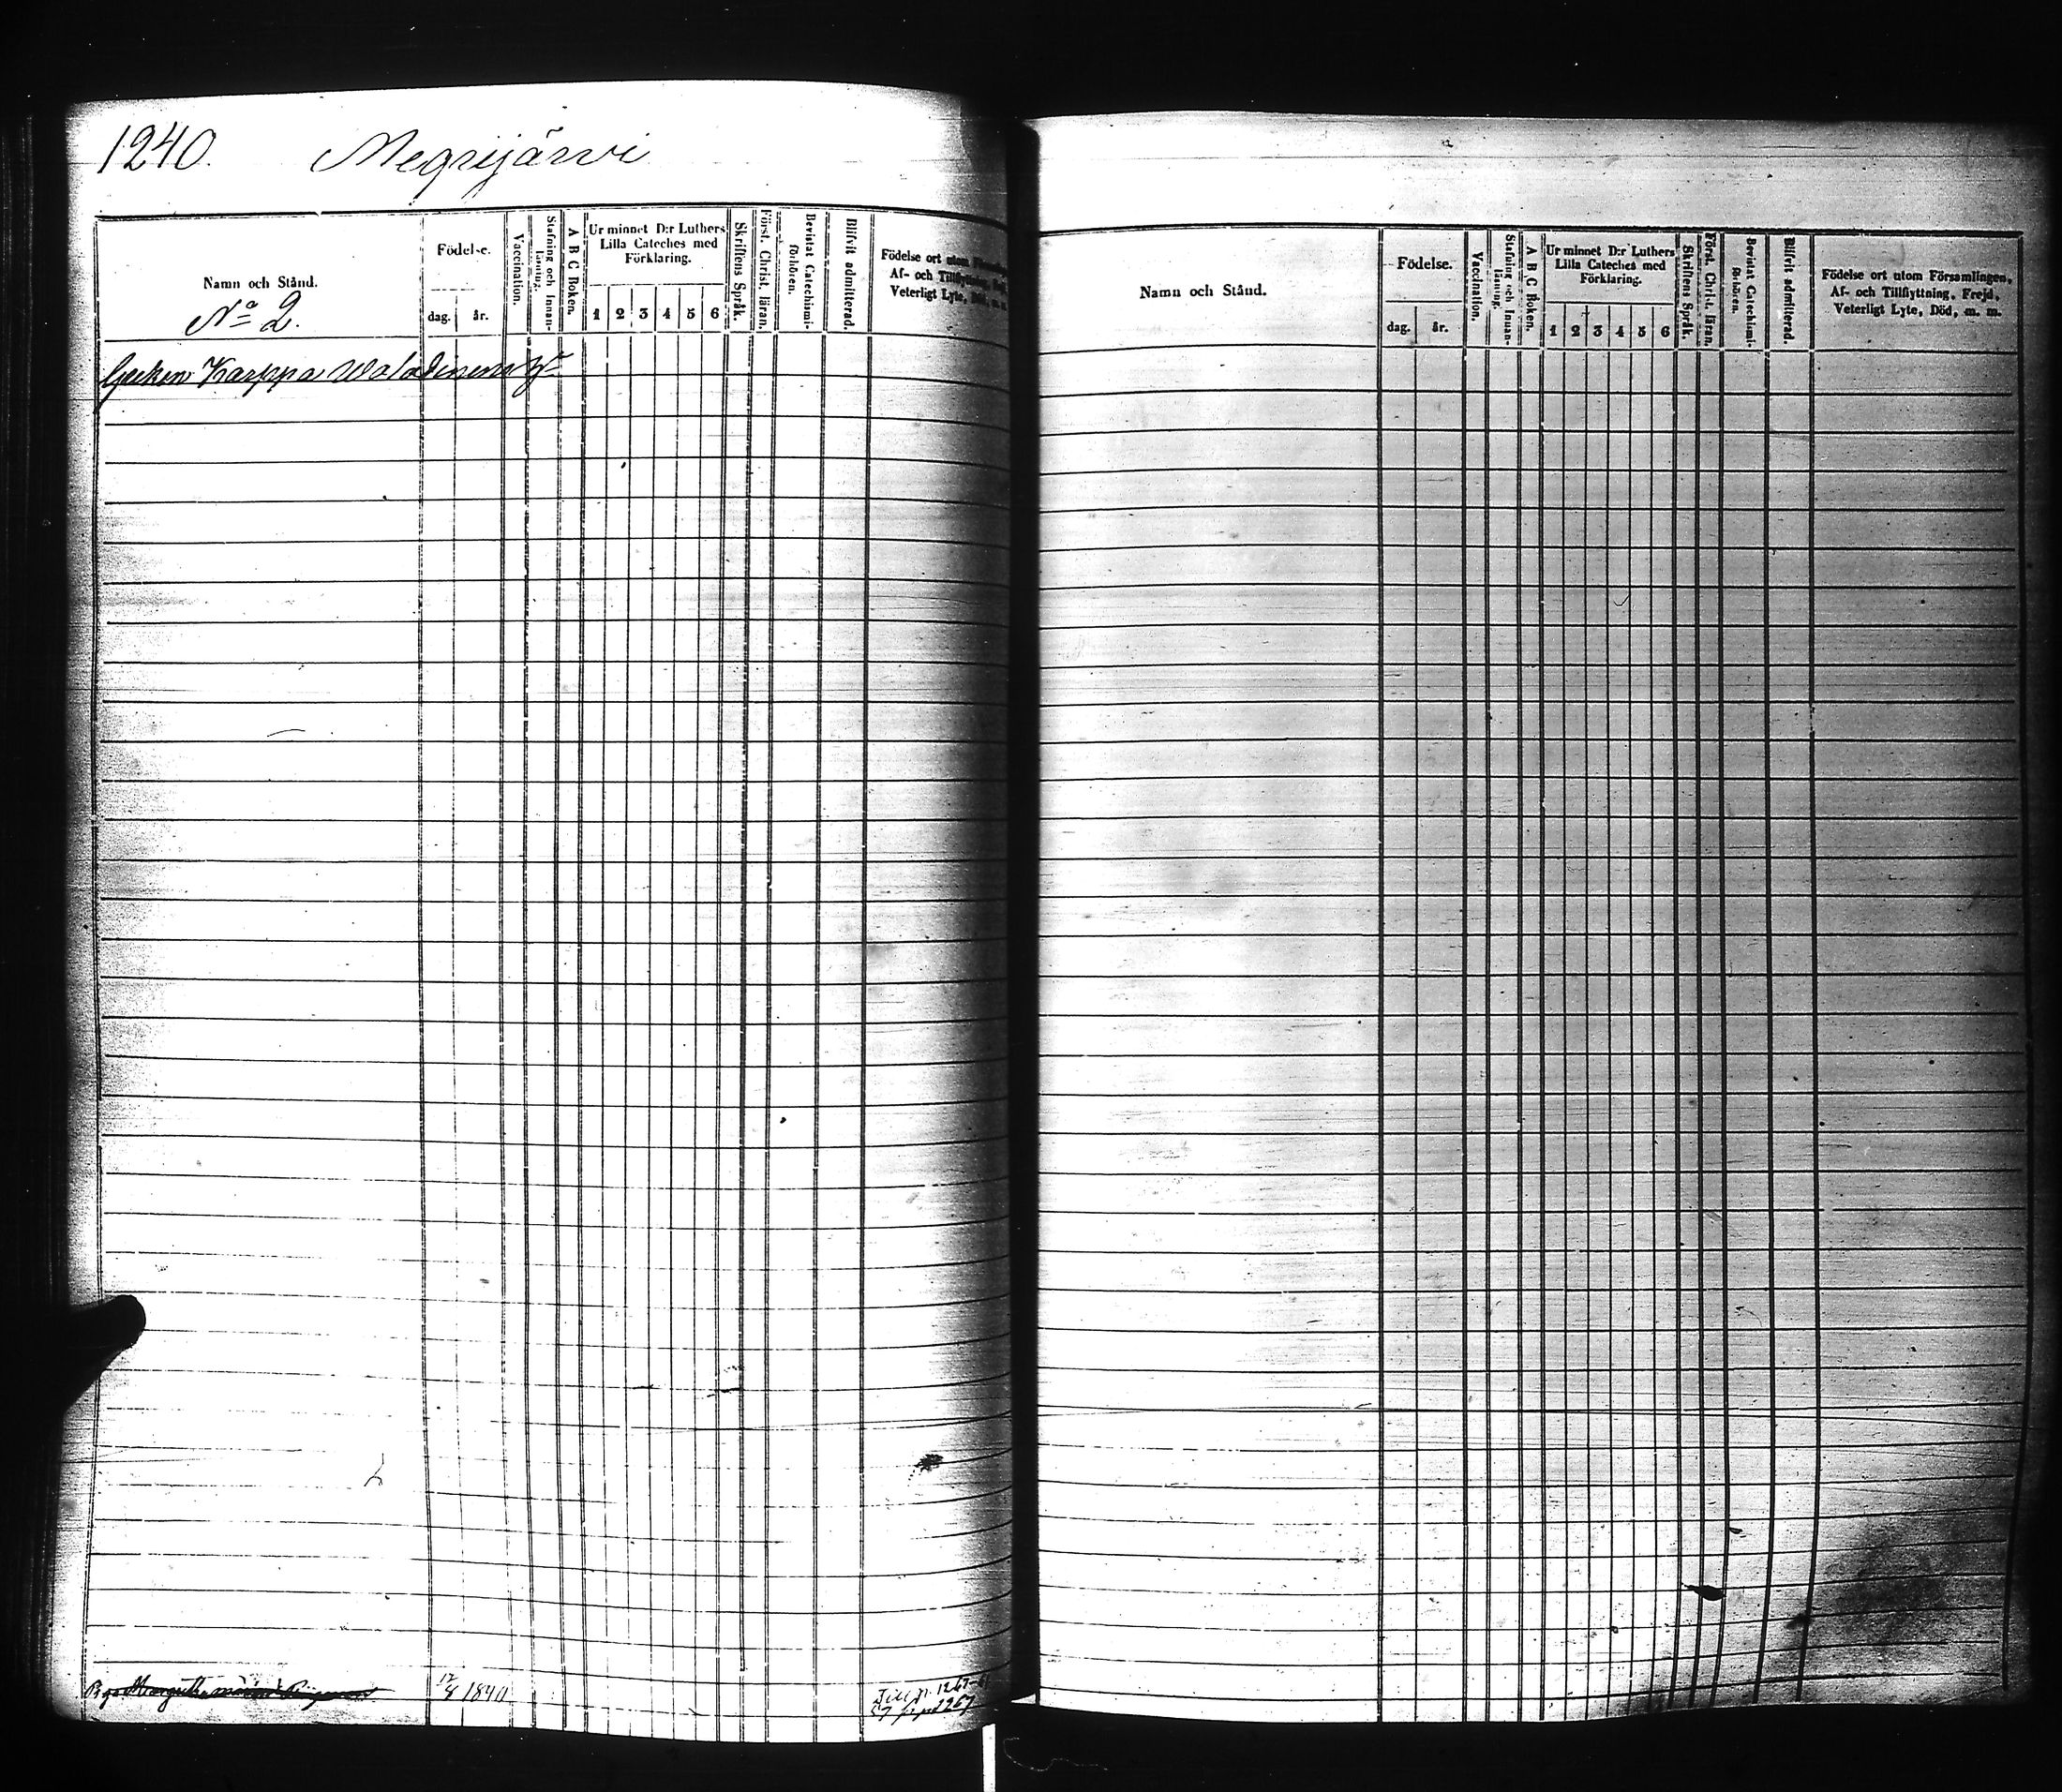 1240. Megrijärvi
Namn och Stånd.
No 2.
Födelse.
dag. år.
Vaccination.
Stafning och Innan-
läsning.
A B C Boken.
Ur minnet D:r Luthers
Lilla Cateches med
Förklaring.
1 2 3 4 5 6
Skriftens Språk.
Först. Christ. läran.
Bevistat Catechismi-
förhören.
Blifvit admitterad.
Födelse ort utom
Af- och Tillflyttning,
Veterligt Lyte, Död,
Karppa
17/8 1840
Namn och Stånd.
Födelse.
dag. år.
Vaccination.
Stafning och Innan-
läsning.
A B C Boken.
Ur minnet D:r Luthers
Lilla Cateches med
Förklaring.
1 2 3 4 5 6
Skriftens Språk.
Först. Christ. läran.
Bevistat Catechismi-
förhören.
Blifvit admitterad.
Födelse ort utom Församlingen,
Af- och Tillflyttning, Frejd,
Veterligt Lyte, Död, m. m.